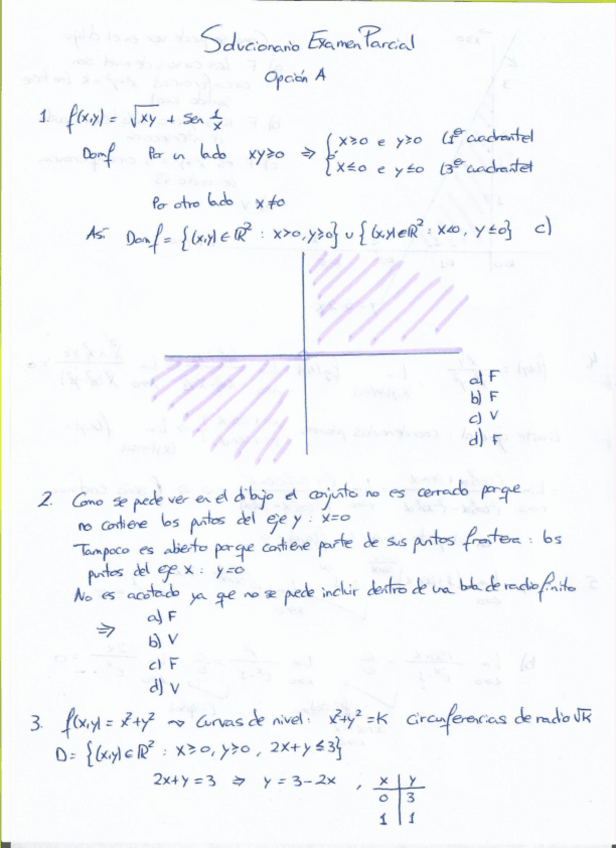 Solucionario Examen Parcial
Opción A
1. f(x,y) = √xy + sen 1/x
Domf Por un lado xy≥0 ⇒ { x≥0 e y≥0 (1er cuadrante)
ó
x≤0 e y≤0 (3er cuadrante)
Por otro lado x≠0
Así Domf = {(x,y)∈ℝ² : x>0, y≥0} ∪ {(x,y)∈ℝ² : x<0, y≤0} c)
a) F
b) F
c) V
d) F
2. Como se puede ver en el dibujo el conjunto no es cerrado porque
no contiene los puntos del eje y : x=0
Tampoco es abierto porque contiene parte de sus puntos frontera : los
puntos del eje x : y=0
No es acotado ya que no se puede incluir dentro de una bola de radio finito
⇒ a) F
b) V
c) F
d) V
3. f(x,y) = x²+y² ⤳ Curvas de nivel: x²+y² = K circunferencias de radio √K
D = {(x,y)∈ℝ² : x≥0, y≥0, 2x+y≤3}
2x+y=3 ⇒ y=3-2x , x | y
0 | 3
1 | 1